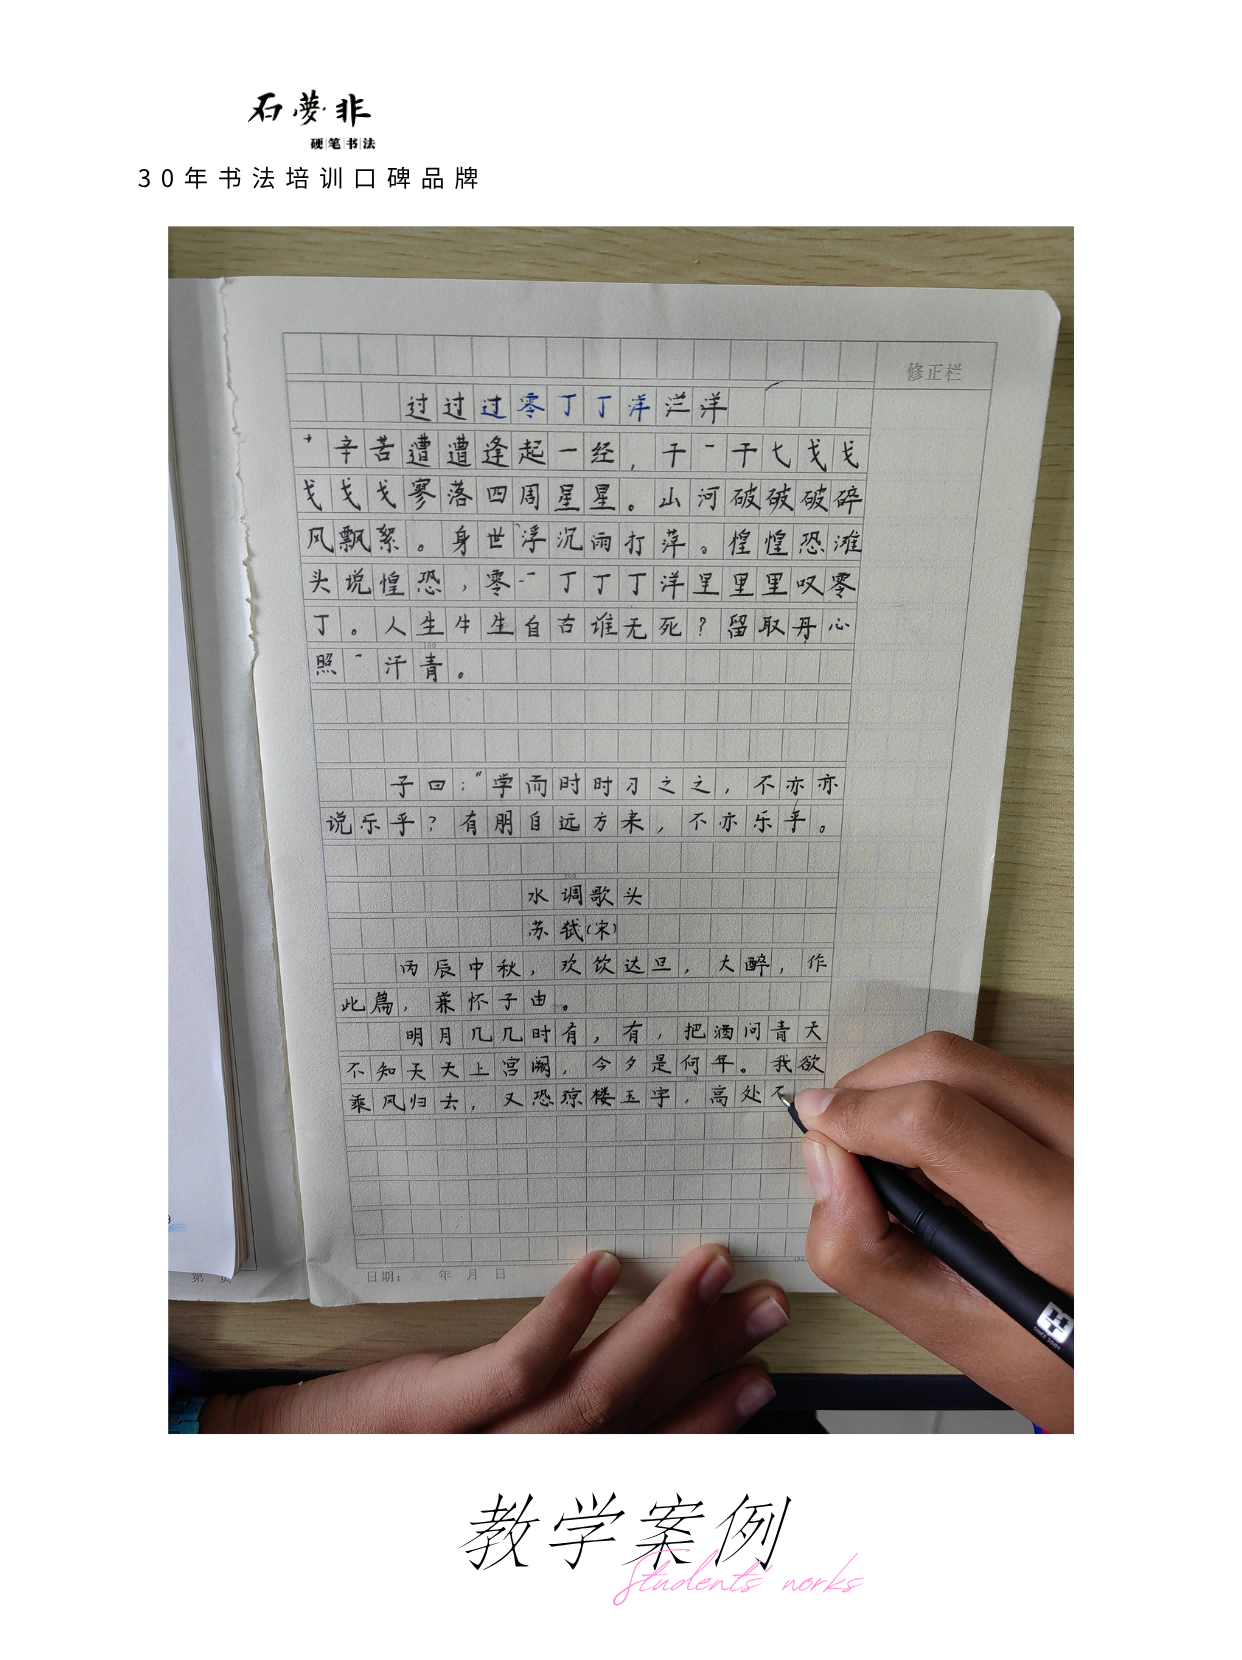 石夢非
硬笔书法
30年书法培训口碑品牌
修正栏
过过过零丁丁洋泮洋
辛苦遭遭逢起一经，干一干七戈戈
戈戈戈寥落四周星星。山河破破破碎
风飘絮。身世浮沉雨打萍。惶惶恐滩
头说惶恐，零一丁丁丁洋里里里叹零
丁。人生牛生自古谁无死？留取丹心
照汗青。
100
子曰："学而时时习之之，不亦亦
说乐乎？有朋自远方来，不亦乐乎。
200
水调歌头
苏轼（宋）
丙辰中秋，欢饮达旦，大醉，作
此篇，兼怀子由。
明月几几时有，有，把酒问青天
不知天天上宫阙，今夕是何年。我欲
300
乘风归去，又恐琼楼玉宇，高处不
日期：年月日
第 页
教学案例
Students' norks